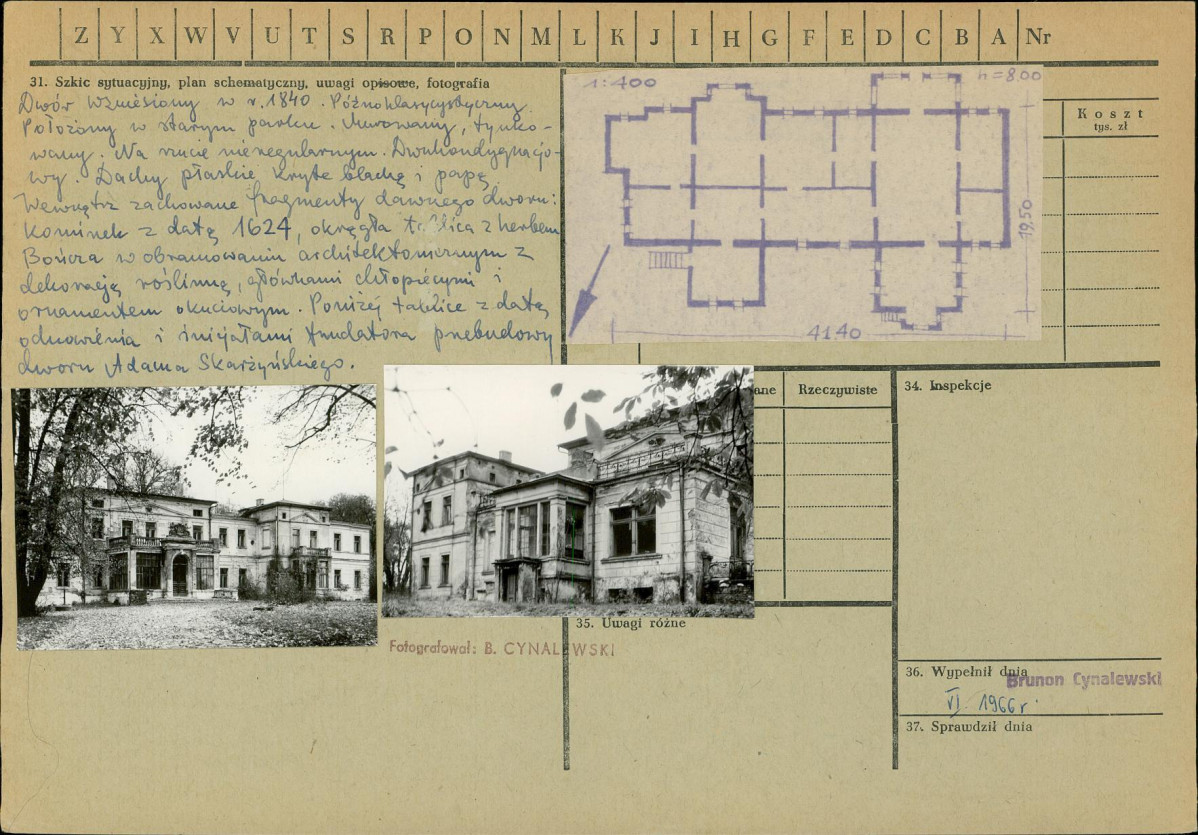 Z Y X W V U T S R P O N M L K J I H G F E D C B A Nr
31. Szkic sytuacyjny, plan schematyczny, uwagi opisowe, fotografia
Dwór wzniesiony w r. 1840. Późnoklasycystyczny.
Położony w starym parku. Murowany, tynko-
wany. Na rzucie nieregularnym. Dwukondygnacjo-
wy. Dachy płaskie kryte blachą i papą.
Wewnątrz zachowane fragmenty dawnego dworu:
kominek z datą 1624, okrągła tablica z herbem
Bończa w obramowaniu architektonicznym z
dekoracją roślinną, główkami chłopięcymi i
ornamentem okuciowym. Poniżej tablice z datą
odnowienia i inicjałami fundatora przebudowy
dworu Adama Skarżyńskiego.
1:400
h=8,00
19,50
41.40
Koszt
tys. zł
ane
Rzeczywiste
34. Inspekcje
35. Uwagi różne
Fotografował: B. CYNALEWSKI
36. Wypełnił dnia
Brunon Cynalewski
VI 1966 r.
37. Sprawdził dnia